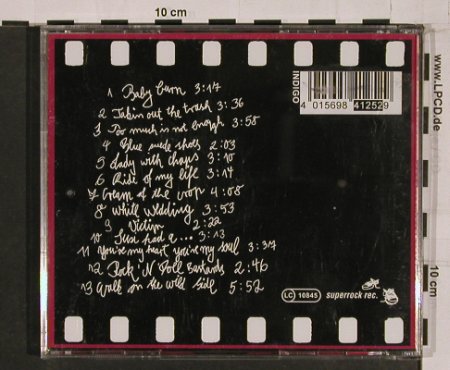 10 cm
www.LPCD.de
10 cm
INDIGO
4 015698 412529
1 Baby burn 3:17
2 Takin out the trash 3:36
3 To much is not enough 3:58
4 Blue suede shoes 2:03
5 Lady with chaps 3:10
6 Ride of my life 3:14
7 Cream of the crop 4:08
8 White Wedding 3:53
9 Victim 2:22
10 Just had a ... 3:13
11 You're my heart you're my soul 3:37
12 Rock'N Roll Bastards 2:46
13 Walk on the wild side 5:52
LC 10845 superrock rec.